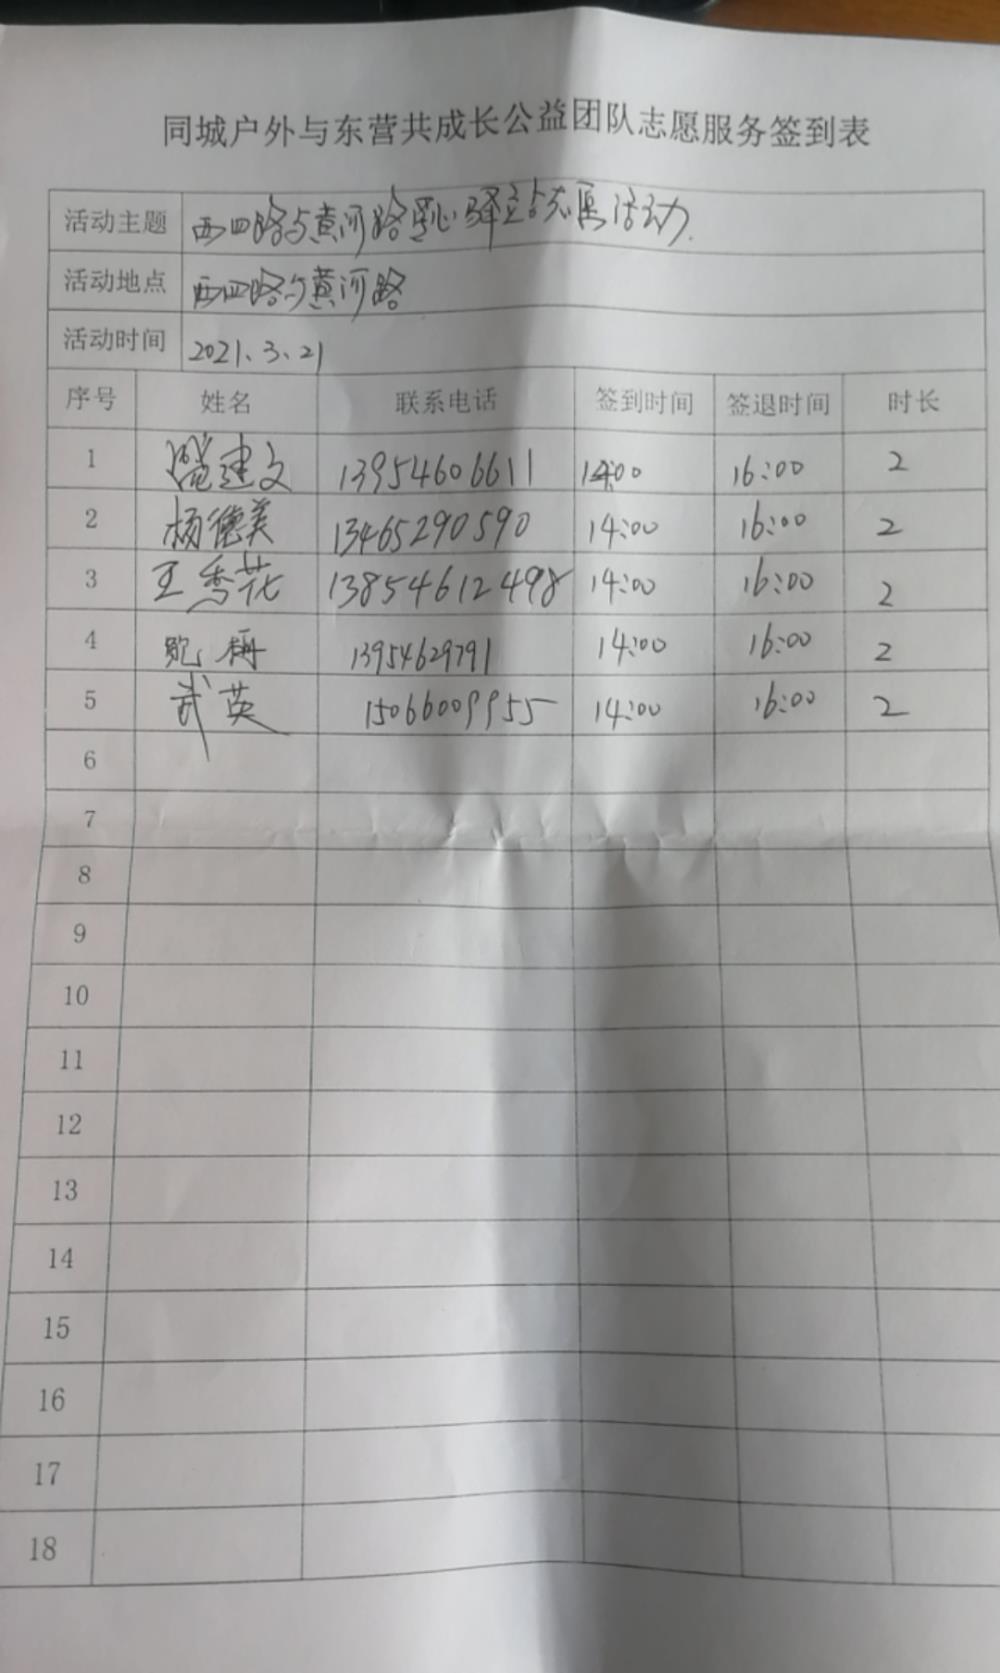 同城户外与东营共成长公益团队志愿服务签到表
活动主题 西四路与黄河路爱心驿站志愿活动.
活动地点 西四路与黄河路
活动时间 2021、3、21
序号 姓名 联系电话 签到时间 签退时间 时长
1 建文 13954606611 14:00 16:00 2
2 杨德美 13465290590 14:00 16:00 2
3 王秀花 13854612498 14:00 16:00 2
4 13954629791 14:00 16:00 2
5 武英 15066009955 14:00 16:00 2
6
7
8
9
10
11
12
13
14
15
16
17
18